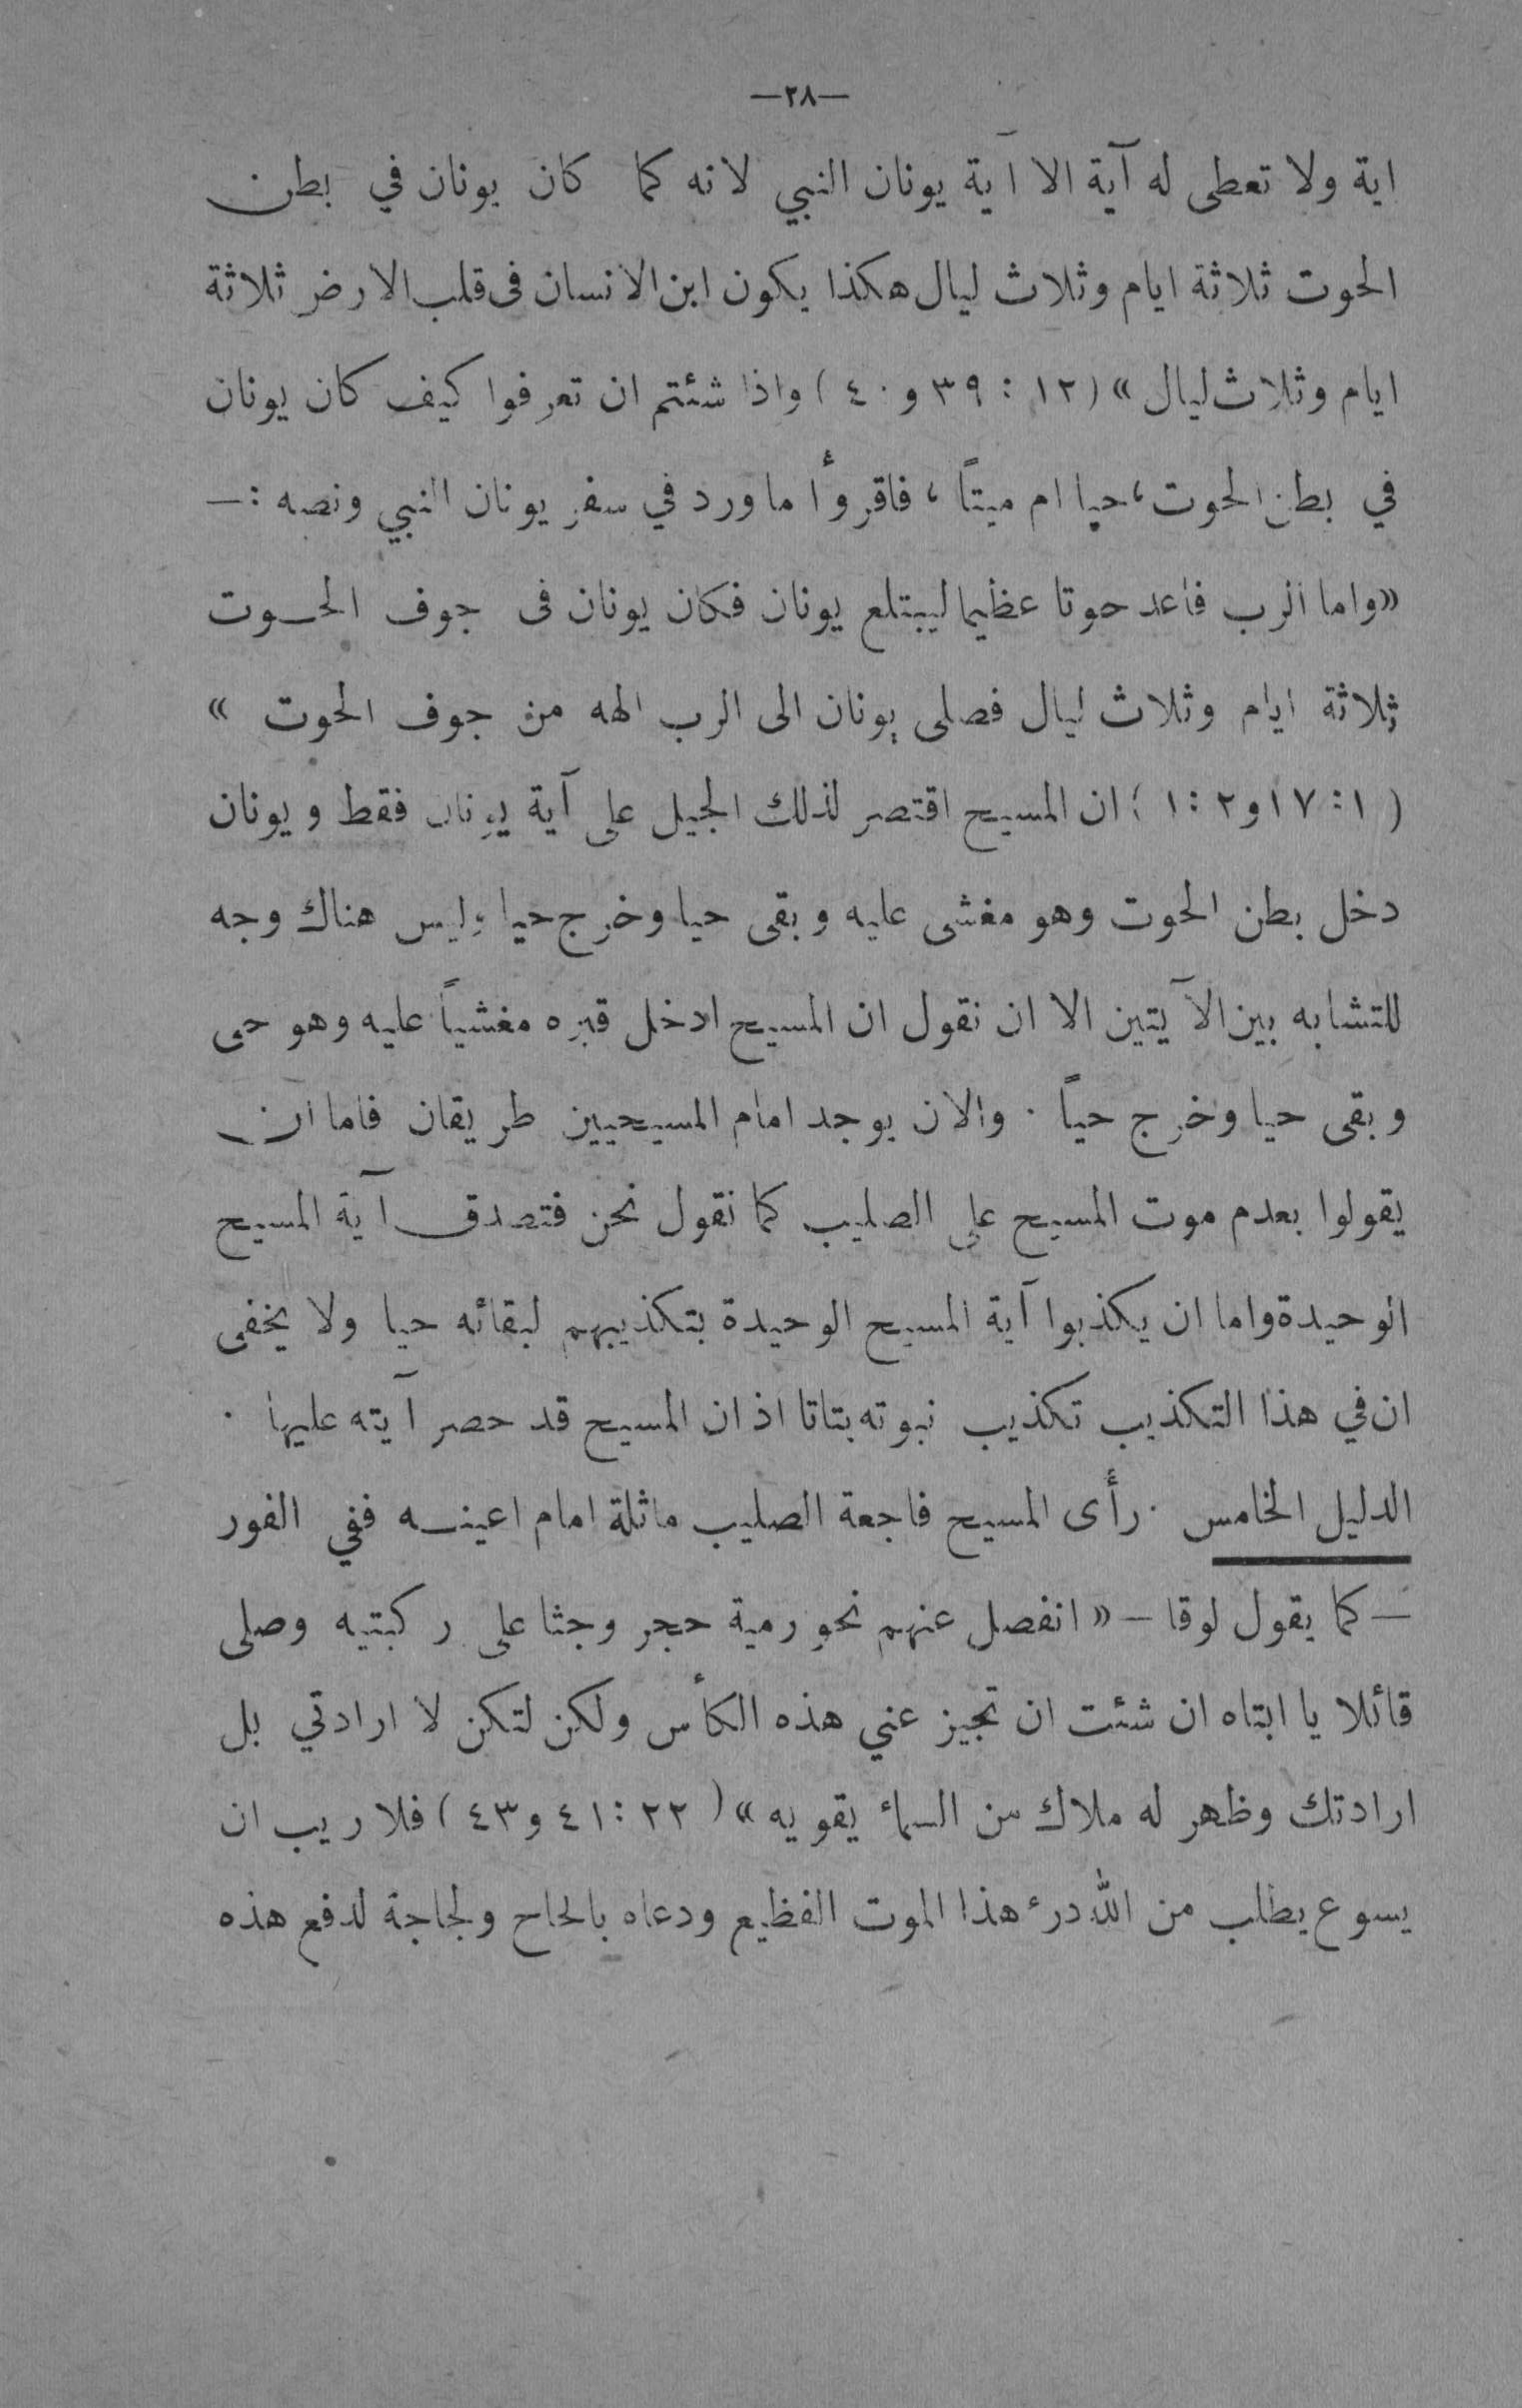 —٢٨—
اية ولا تعطى له آية الا آية يونان النبي لانه كما كان يونان في بطن
الحوت ثلاثة ايام وثلاث ليال هكذا يكون ابن الانسان فى قلب الارض ثلاثة
ايام وثلاث ليال » (١٢ : ٣٩ و ٤٠) واذا شئتم ان تعرفوا كيف كان يونان
في بطن الحوت ، حيا ام ميتاً ، فاقروأ ما ورد في سفر يونان النبي ونصه :—
«واما الرب فاعد حوتا عظيما ليبتلع يونان فكان يونان فى جوف الحوت
ثلاثة ايام وثلاث ليال فصلى يونان الى الرب الهه من جوف الحوت »
(١ : ١٧ و ٢ : ١) ان المسيح اقتصر لذلك الجيل على آية يونان فقط ويونان
دخل بطن الحوت وهو مغشى عليه وبقى حيا وخرج حيا وليس هناك وجه
للتشابه بين الآيتين الا ان نقول ان المسيح ادخل قبره مغشياً عليه وهو حى
وبقى حيا وخرج حياً . والان يوجد امام المسيحيين طريقان فاما ان
يقولوا بعدم موت المسيح على الصليب كما نقول نحن فتصدق آية المسيح
الوحيدة واما ان يكذبوا آية المسيح الوحيدة بتكذيبهم لبقائه حيا ولا يخفى
ان في هذا التكذيب تكذيب نبوته بتاتا اذ ان المسيح قد حصر آيته عليها .
الدليل الخامس . رأى المسيح فاجعة الصليب ماثلة امام اعينه ففي الفور
— كما يقول لوقا — « انفصل عنهم نحو رمية حجر وجثا على ركبتيه وصلى
قائلا يا ابتاه ان شئت ان تجيز عني هذه الكأس ولكن لتكن لا ارادتي بل
ارادتك وظهر له ملاك من السماء يقويه » (٢٢ : ٤١ و ٤٣) فلا ريب ان
يسوع يطلب من الله درء هذا الموت الفظيع ودعاه بالحاح ولجاجة لدفع هذه